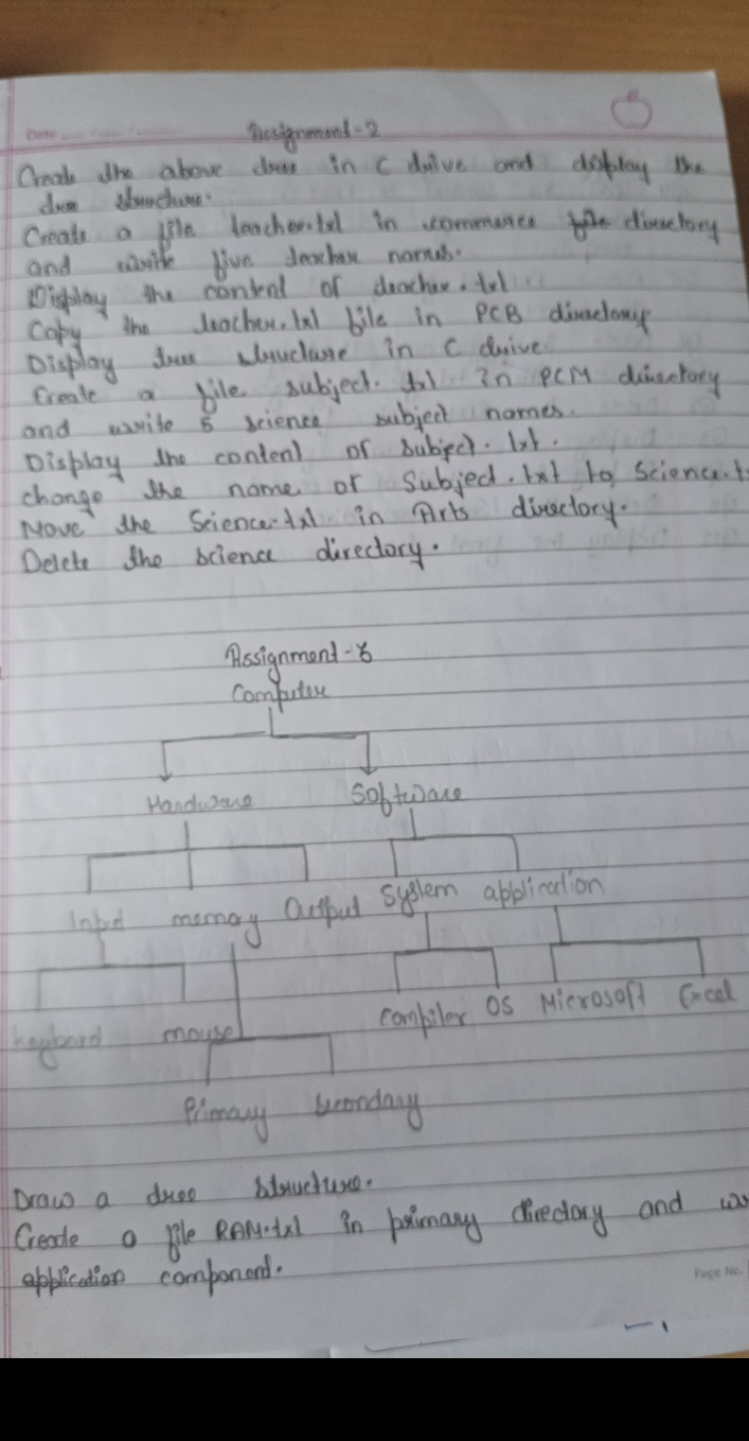 Date
Assignment-2
Create the above tree in C drive and display the
tree structure.
Create a file teacher.txt in commerce file directory
and write five teacher names.
Display the content of teacher.txt
Copy the teacher.txt file in PCB directory
Display tree structure in C drive
Create a file subject.txt in PCM directory
and write 5 science subject names.
Display the content of subject.txt.
change the name of Subject.txt to Science.t
Move the Science.txt in Arts directory.
Delete the science directory.
Assignment-
Computer
Hardware Software
Input memory Output System application
Compiler OS Microsoft Excel
Keyboard mouse
Primary secondary
Draw a tree structure.
Create a file RAM.txt in primary directory and
application component.
Page No.